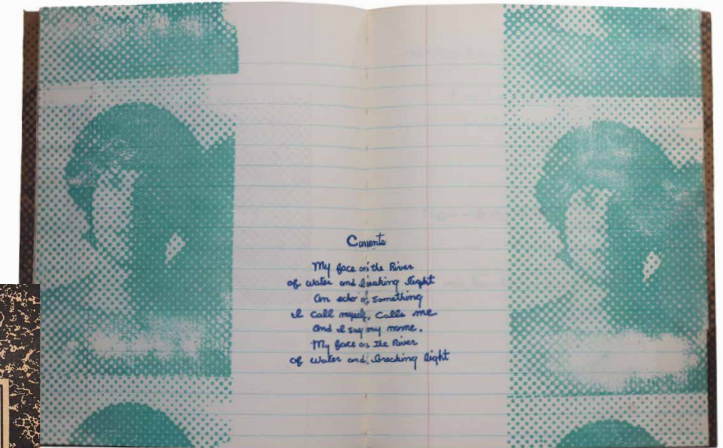 Currents
My face on the River
of water and breaking light
An echo of something
I call myself, calls me
and I say my name.
My face on the River
of water and breaking light